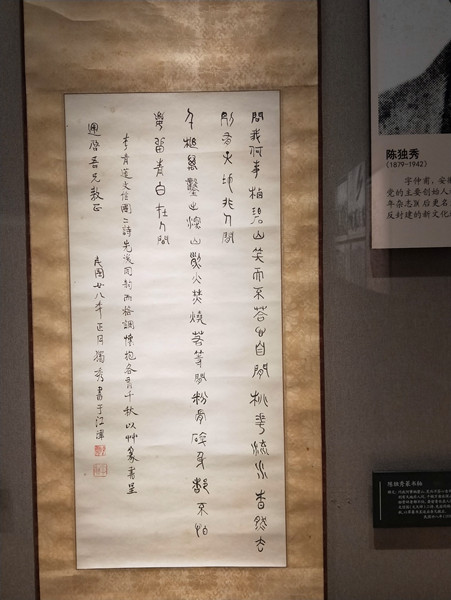 問我何事栖碧山笑而不荅心自閒桃花流水杳然去
别有天地非人間
千槌萬鑿出深山火焚燒若等閒粉骨碎身都不怕
留青白在人間
李青蓮文信國二詩先後同韵而格調懷抱各有千秋以艸篆書呈
啓吾兄教正
民國廿八年正月獨秀書于江津
陈独秀
(1879-1942)
字仲甫，安
党的主要创始人
年杂志》(后更名
反封建的新文化
陈独秀篆书轴